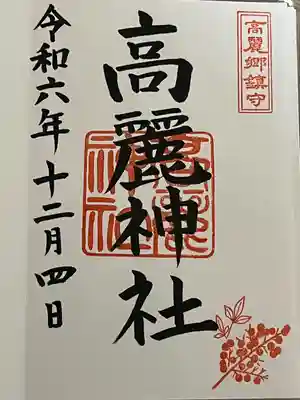 高麗郷鎮守
高麗神社
高麗神社
令和六年十二月四日